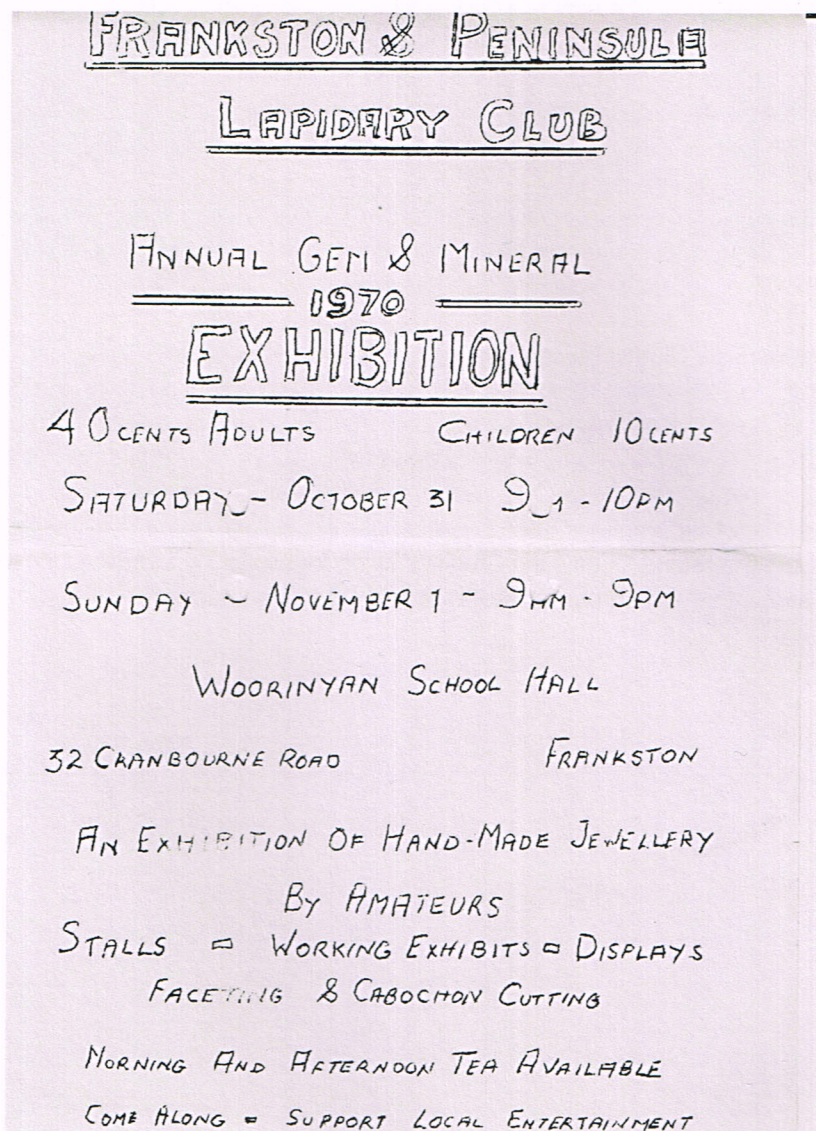 FRANKSTON & PENINSULA
LAPIDARY CLUB
ANNUAL GEM & MINERAL
1970
EXHIBITION
40 CENTS ADULTS CHILDREN 10 CENTS
SATURDAY - OCTOBER 31 - 10PM
SUNDAY - NOVEMBER 1 - 9AM - 9PM
WOORINYAN SCHOOL HALL
32 CRANBOURNE ROAD FRANKSTON
AN EXHIBITION OF HAND-MADE JEWELLERY
BY AMATEURS
STALLS = WORKING EXHIBITS = DISPLAYS
FACETING & CABOCHON CUTTING
MORNING AND AFTERNOON TEA AVAILABLE
COME ALONG = SUPPORT LOCAL ENTERTAINMENT